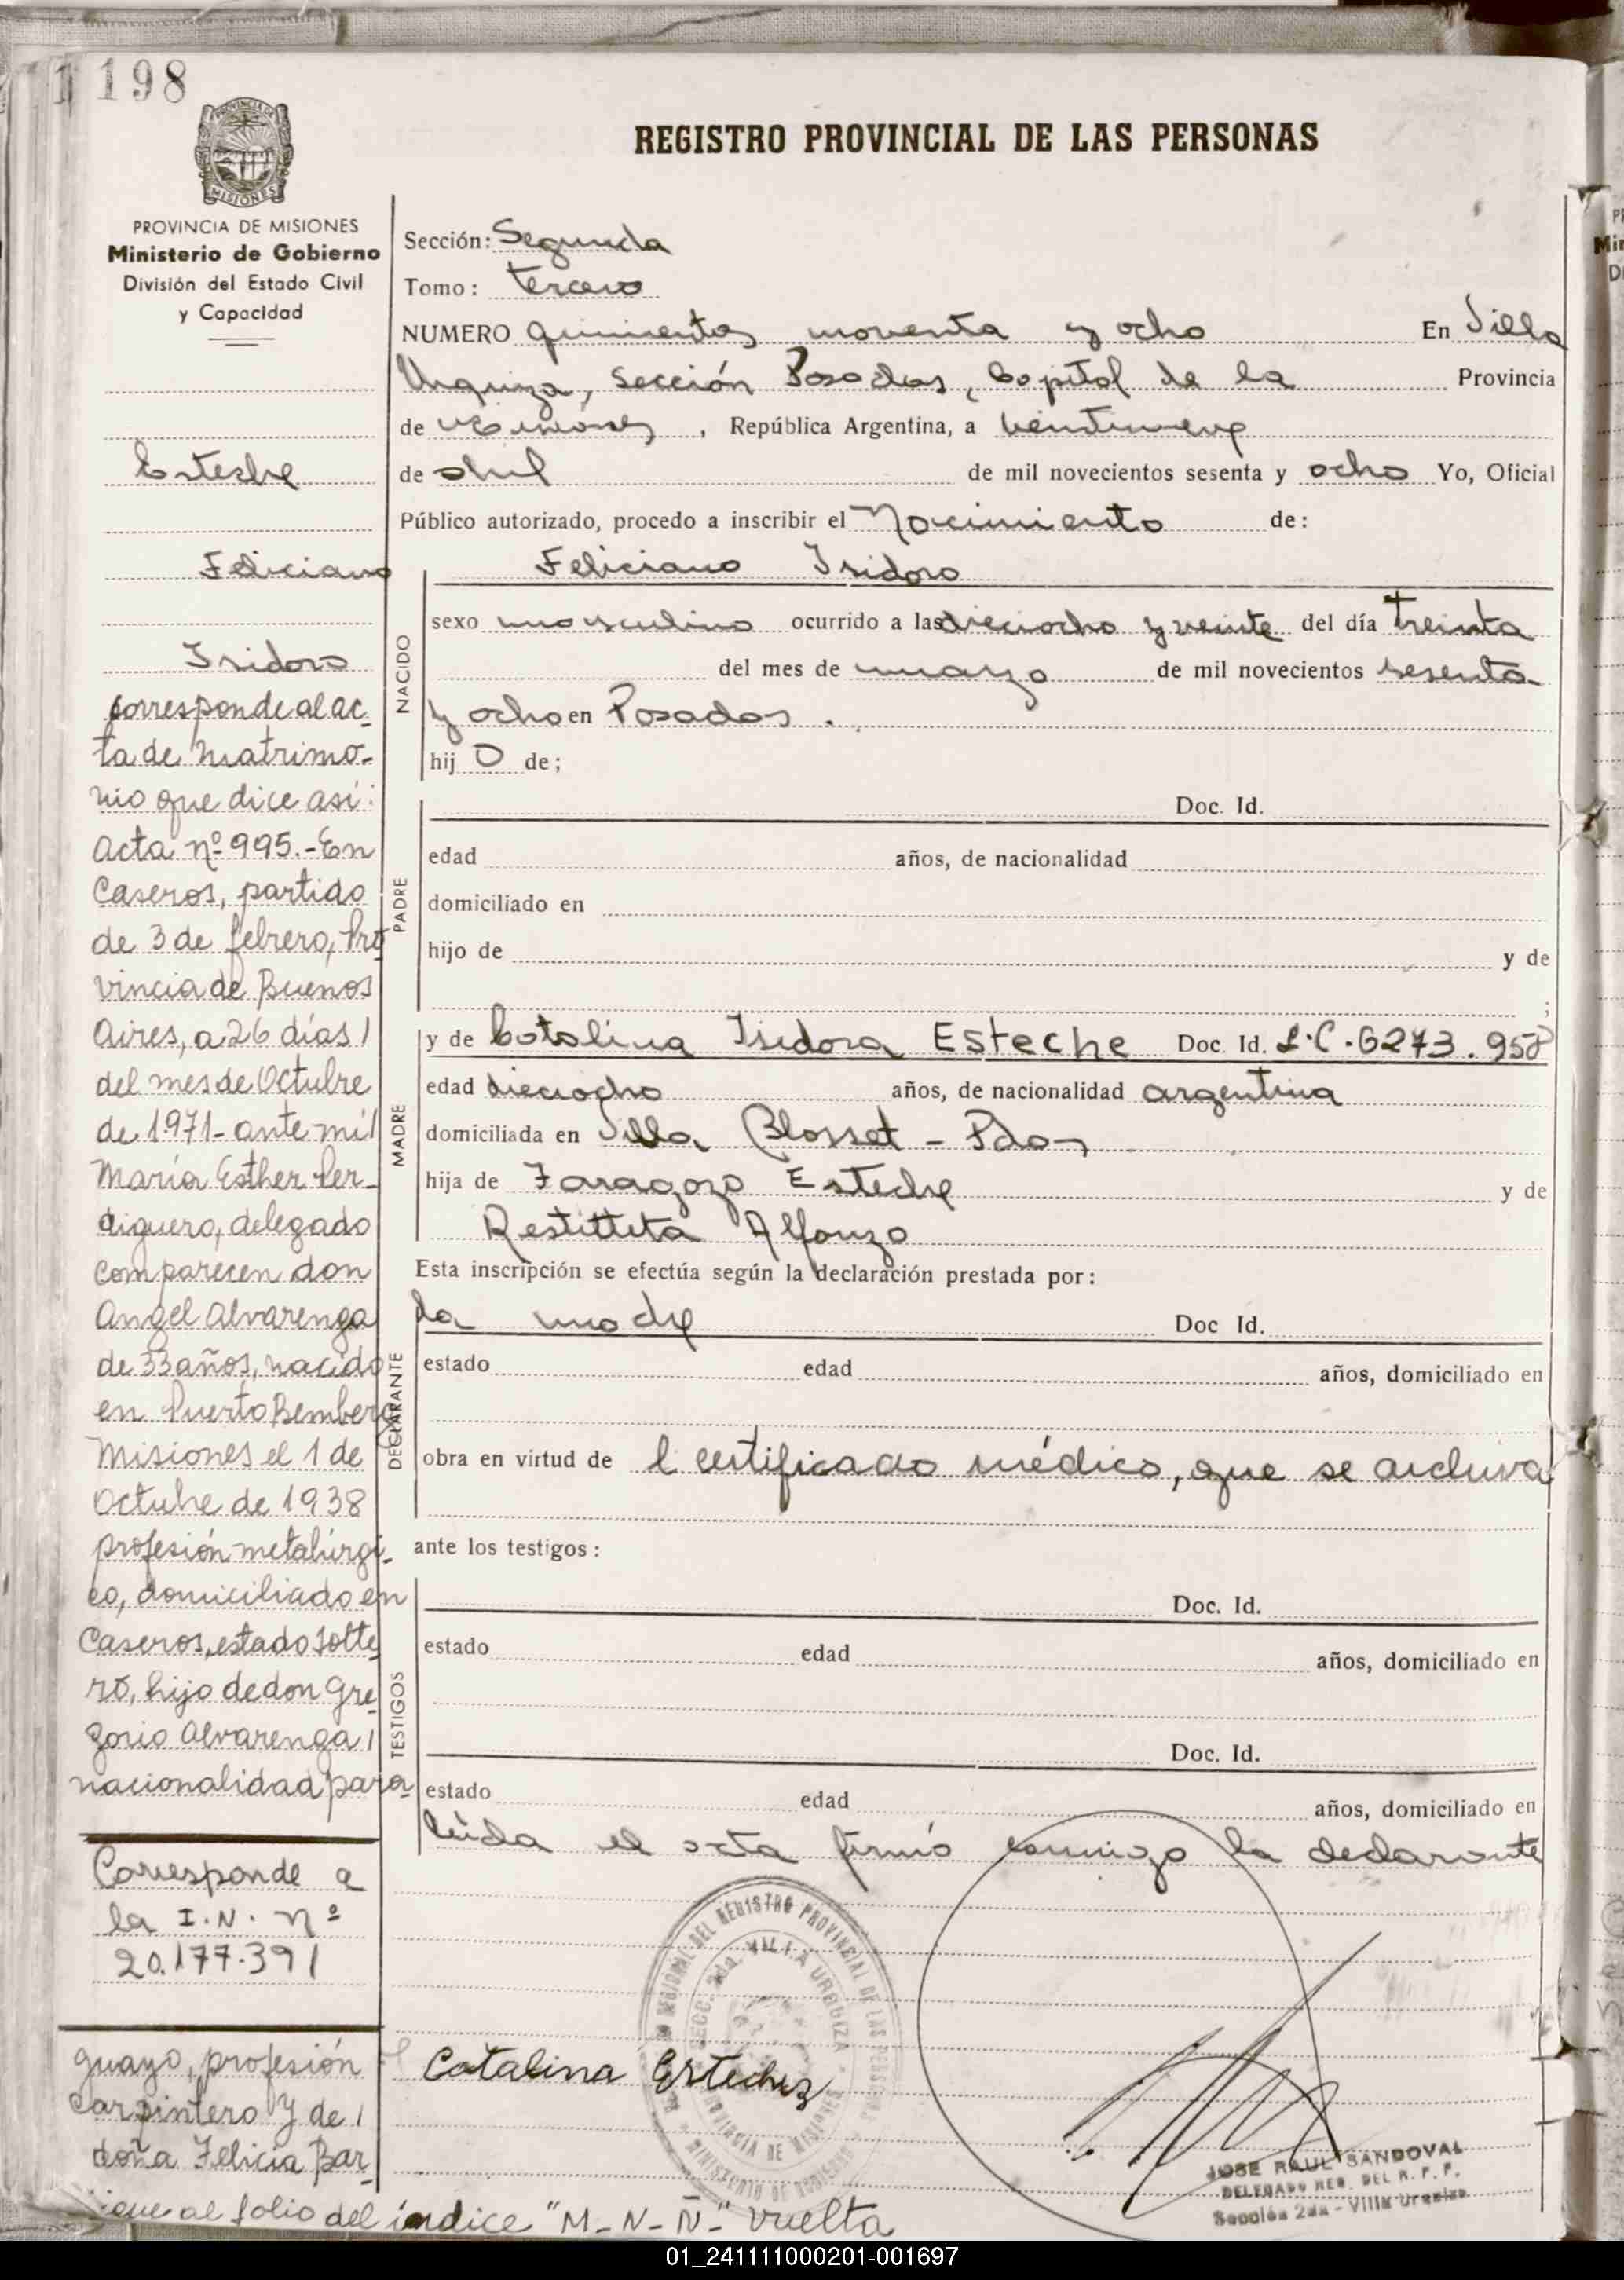 198
REGISTRO PROVINCIAL DE LAS PERSONAS
PROVINCIA DE MISIONES
Ministerio de Gobierno
División del Estado Civil
y Capacidad
Esteche
Feliciano
Isidoro
corresponde al ac-
ta de matrimo-
nio que dice así:
Acta nº 995.- En
Caseros, partido
de 3 de febrero, Pro
vincia de Buenos
Aires, a 26 días /
del mes de Octubre
de 1971 - ante mí /
María Esther Per-
diguero, delegado
comparecen don
Angel Alvarenga
de 33 años, nacido
en Puerto Bemberg
Misiones el 1 de
Octubre de 1938
profesión metalúrgi-
co, domiciliado en
Caseros, estado solte
ro, hijo de don Gre
gorio Alvarenga /
nacionalidad para
Corresponde a
la I.N. nº
20.177.391
guayo, profesión
carpintero y de /
doña Felicia Bar-
sigue al folio del índice "M-N-Ñ-" vuelta
Sección: Segunda
Tomo: tercero
NUMERO quinientos noventa y ocho En Villa
Urquiza, Sección Posadas, Capital de la Provincia
de Misiones, República Argentina, a veintinueve
de abril de mil novecientos sesenta y ocho Yo, Oficial
Público autorizado, procedo a inscribir el Nacimiento de:
Feliciano Isidoro
NACIDO
sexo masculino ocurrido a las dieciocho y veinte del día treinta
del mes de marzo de mil novecientos sesenta
y ocho en Posadas.
hij o de;
PADRE
Doc. Id.
edad años, de nacionalidad
domiciliado en
hijo de y de
;
MADRE
y de Catalina Isidora Esteche Doc. Id. L.C. 6273.958
edad dieciocho años, de nacionalidad argentina
domiciliada en Villa Blosset - Pdas
hija de Zaragozo Esteche y de
Restituta Alfonzo
Esta inscripción se efectúa según la declaración prestada por:
DECLARANTE
la madre Doc Id.
estado edad años, domiciliado en
obra en virtud de l certificado médico, que se archiva
ante los testigos:
TESTIGOS
Doc. Id.
estado edad años, domiciliado en
Doc. Id.
estado edad años, domiciliado en
leída el acta firmó conmigo la declarante
REGISTRO PROVINCIAL DE LAS PERSONAS
SECC. 2da. VILLA URQUIZA
PROVINCIA DE MISIONES
Catalina Esteche
JOSE RAUL SANDOVAL
DELEGADO REG. DEL R. P. P.
Sección 2da - Villa Urquiza
01_241111000201-001697